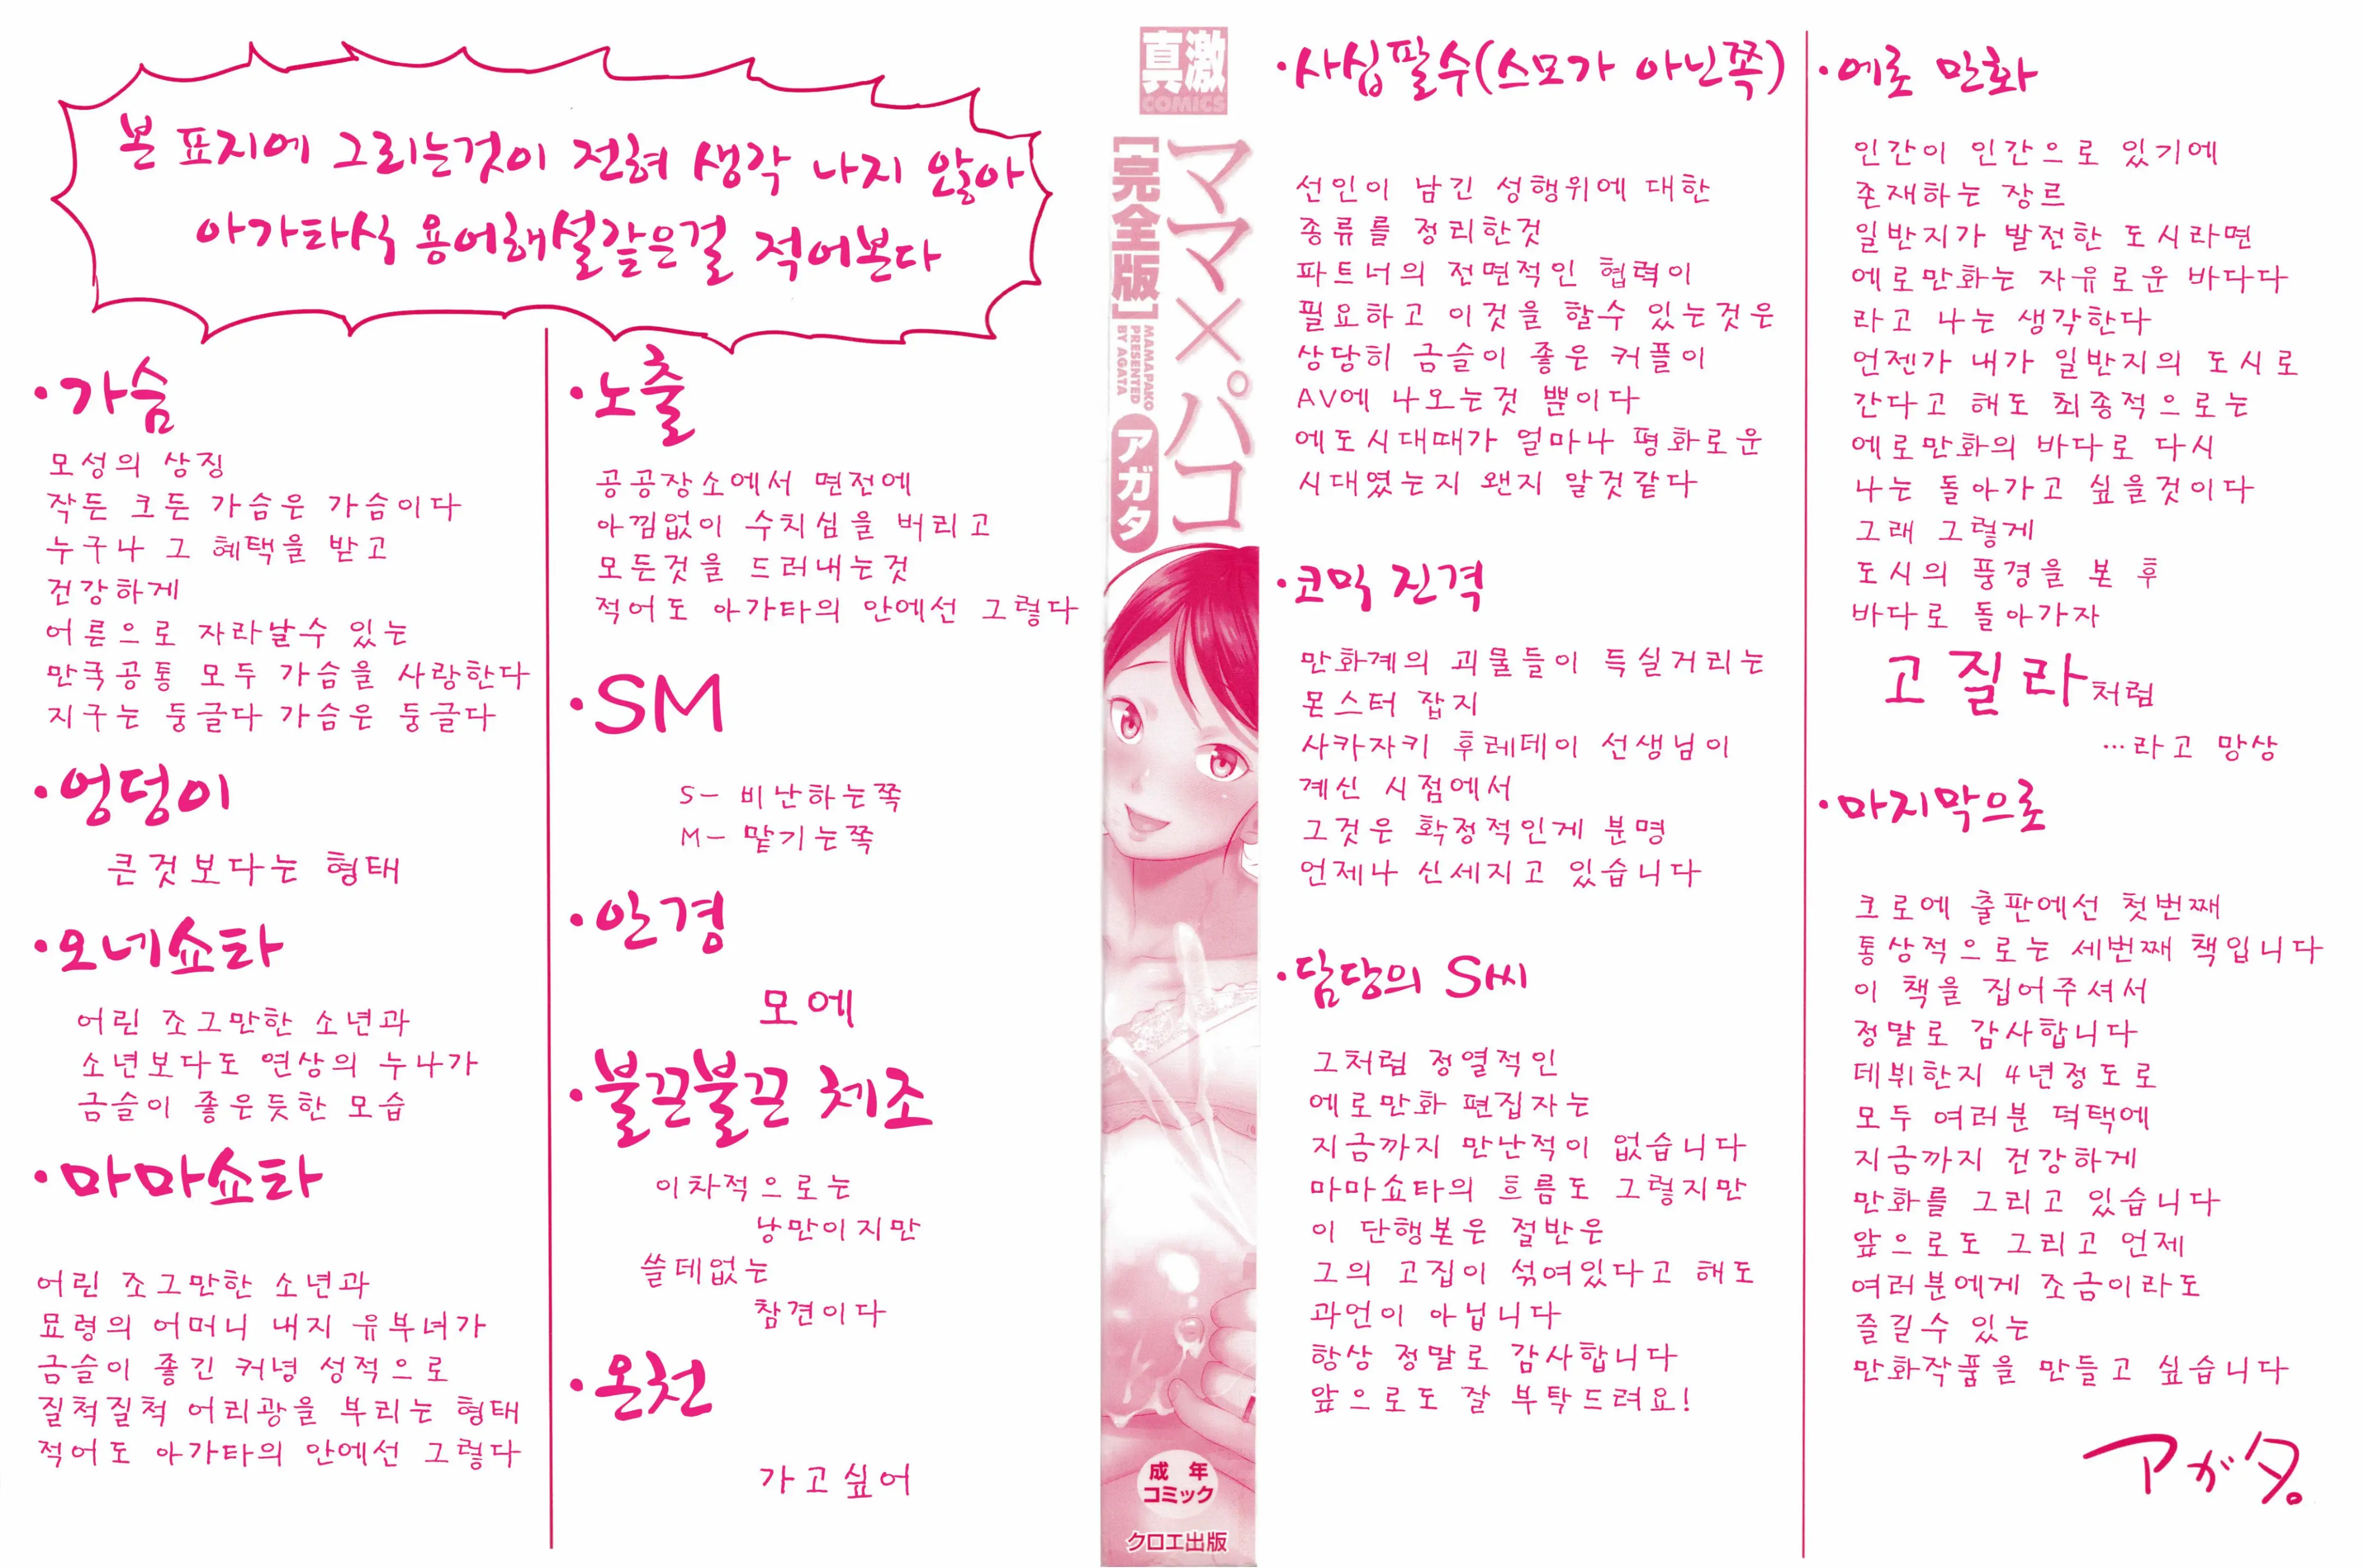 본 표지에 그리는것이 전혀 생각 나지 않아
아가타식 용어해설같은걸 적어본다
·가슴
모성의 상징
작든 크든 가슴은 가슴이다
누구나 그 혜택을 받고
건강하게
어른으로 자라날수 있는
만국공통 모두 가슴을 사랑한다
지구는 둥글다 가슴은 둥글다
·엉덩이
큰것보다는 형태
·노출
공공장소에서 면전에
아낌없이 수치심을 버리고
모든것을 드러내는것
적어도 아가타의 안에선 그렇다
·SM
S- 비난하는쪽
M- 맡기는쪽
·안경
모에
·불끈불끈 체조
이차적으로는
낭만이지만
쓸데없는
참견이다
·온천
가고싶어
真激
COMICS
ママ×パコ
[完全版]
MAMAPAKO
PRESENTED
BY AGATA
アガタ
成年
コミック
クロエ出版
·사십팔수(스모가 아닌쪽)
선인이 남긴 성행위에 대한
종류를 정리한것
파트너의 전면적인 협력이
필요하고 이것을 할수 있는것은
상당히 금슬이 좋은 커플이
AV에 나오는것 뿐이다
에도시대때가 얼마나 평화로운
시대였는지 왠지 알것같다
·코믹 진격
만화계의 괴물들이 득실거리는
몬스터 잡지
사카자키 후레데이 선생님이
계신 시점에서
그것은 확정적인게 분명
언제나 신세지고 있습니다
·담당의 S씨
그처럼 정열적인
에로만화 편집자는
지금까지 만난적이 없습니다
이 단행본은 절반은
그의 고집이 섞여있다고 해도
과언이 아닙니다
항상 정말로 감사합니다
앞으로도 잘 부탁드려요!
·에로 만화
인간이 인간으로 있기에
존재하는 장르
일반지가 발전한 도시라면
에로만화는 자유로운 바다다
라고 나는 생각한다
언젠가 내가 일반지의 도시로
간다고 해도 최종적으로는
에로만화의 바다로 다시
나는 돌아가고 싶을것이다
그래 그렇게
도시의 풍경을 본 후
바다로 돌아가자
고질라처럼
…라고 망상
·마지막으로
크로에 출판에선 첫번째
통상적으로는 세번째 책입니다
이 책을 집어주셔서
정말로 감사합니다
데뷔한지 4년정도로
모두 여러분 덕택에
지금까지 건강하게
만화를 그리고 있습니다
앞으로도 그리고 언제
여러분에게 조금이라도
즐길수 있는
만화작품을 만들고 싶습니다
アガタ。